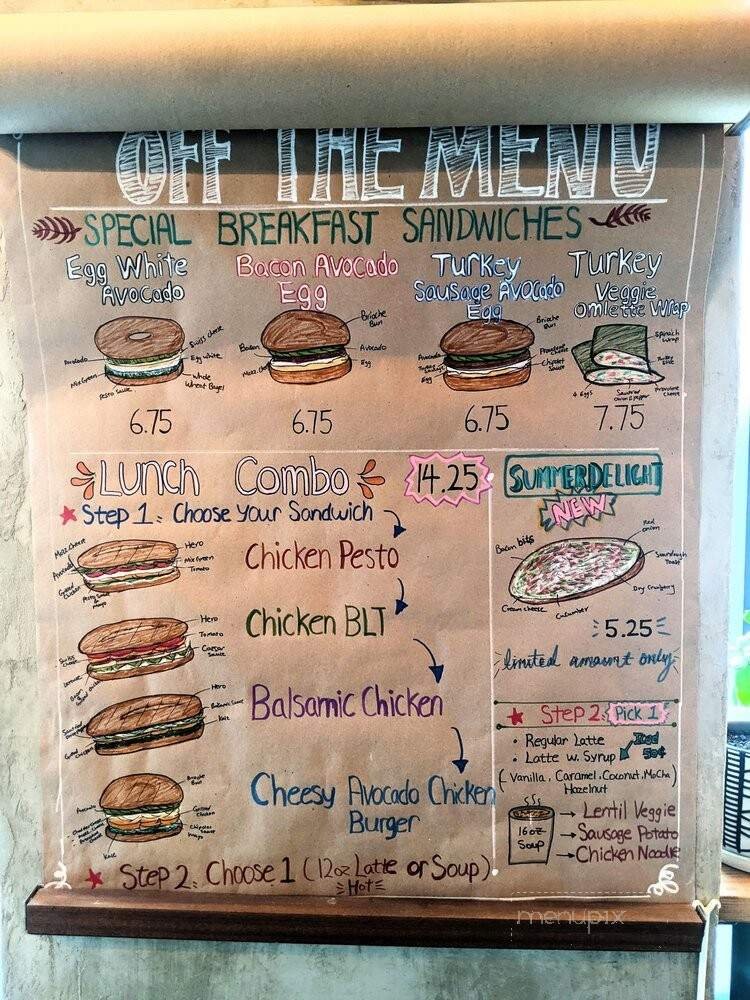 OFF THE MENU
SPECIAL BREAKFAST SANDWICHES
Egg White
AVOCADO
Swiss cheese
Avocado
Egg white
Mix Green
Whole
Wheat Bagel
Pesto Sauce
6.75
Bacon Avocado
Egg
Brioche
Bun
Bacon
Avocado
Egg
6.75
Turkey
Sausage Avocado
Egg
Brioche
Bun
Avocado
Provolone
Cheese
Chipotle
Sauce
Egg
6.75
Turkey
Veggie
Omlette Wrap
Spinach
Wrap
4 Eggs
Provolone
Cheese
7.75
Lunch Combo
14.25
Step 1: Choose Your Sandwich
Chicken Pesto
Hero
Mix Green
Tomato
Avocado
Grilled
Chicken
Chicken BLT
Hero
Tomato
Caesar
Sauce
Lettuce
Balsamic Chicken
Hero
Balsamic Sauce
Kale
Grilled Chicken
Cheesy Avocado Chicken
Burger
Brioche
Bun
Avocado
Grilled
Chicken
Chipotle
Mayo
Kale
Step 2: Choose 1 (12oz Latte or Soup)
Hot
SUMMER DELIGHT
NEW
Red
onion
Bacon bits
Sourdough
Toast
Dry Cranberry
Cream cheese
Cucumber
5.25
limited amount only
Step 2: Pick 1
• Regular Latte
• Latte w. Syrup
Iced
50¢
(Vanilla, Caramel, Coconut, Mocha)
Hazelnut
16oz
Soup
Lentil Veggie
Sausage Potato
Chicken Noodle
menupix